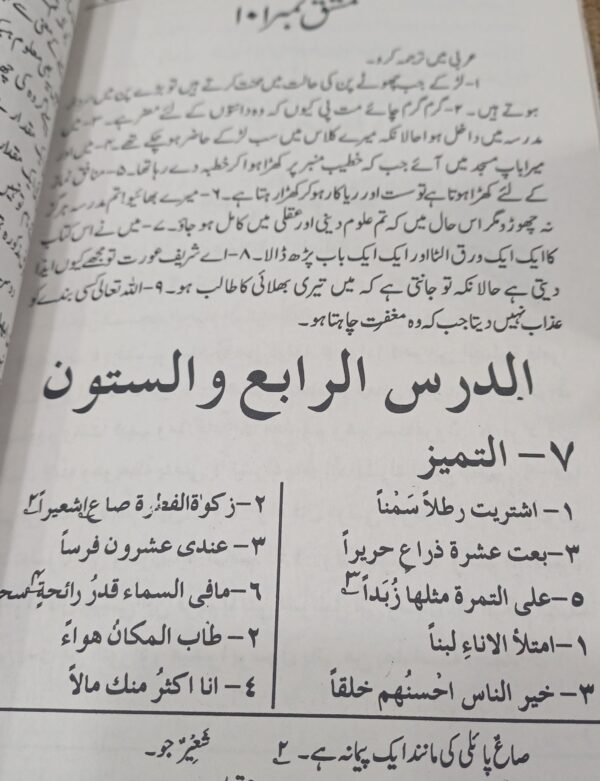 مشق نمبر ۱۰۱
عربی میں ترجمہ کرو۔
۱-لڑکے جب چھوٹے پن کی حالت میں محنت کرتے ہیں تو بڑے پن میں
ہوتے ہیں۔ ۲-گرم گرم چائے مت پی کیوں کہ وہ دانتوں کے لئے مضر ہے۔ ۳-میں
مدرسہ میں داخل ہوا حالانکہ میرے کلاس میں سب لڑکے حاضر ہو چکے تھے۔ ۴-میں اور
میرا باپ مسجد میں آئے جب کہ خطیب منبر پر کھڑا ہوا کر خطبہ دے رہا تھا۔ ۵-منافق نماز
کے لئے کھڑا ہوتا ہے تو سست اور ریاکار ہو کر کھڑا رہتا ہے۔ ۶-میرے بھائیو! تم مدرسہ ہرگز
نہ چھوڑو مگر اس حال میں کہ تم علوم دینی اور عقلی میں کامل ہو جاؤ۔ ۷-میں نے اس کتاب
کا ایک ایک ورق الٹا اور ایک ایک باب پڑھ ڈالا۔ ۸-اے شریف عورت تو مجھے کیوں ایذا
دیتی ہے حالانکہ تو جانتی ہے کہ میں تیری بھلائی کا طالب ہو۔ ۹-اللہ تعالیٰ کسی بندے کو
عذاب نہیں دیتا جب کہ وہ مغفرت چاہتا ہو۔
الدرس الرابع والستون
۷- التمیز
۱- اشتریت رطلاً سَمْناً ۲-زکوٰة الفطرة صاع شعیراً۲
۳-بعت عشرة ذراعٍ حریراً ۳- عندی عشرون فرساً
۵-علی التمرة مثلها زُبَداً۳ ۶-مافی السماء قدرُ رائحةٍ
۱- امتلأ الاناءِ لبناً ۲- طاب المکانُ هواءً
۳- خیر الناس احْسنُهم خلقاً ۴- انا اکثرُ منك مالاً
صاعٌ پائلی کی مانند ایک پیمانہ ہے۔ ۲ شَعِیْرٌ جو۔